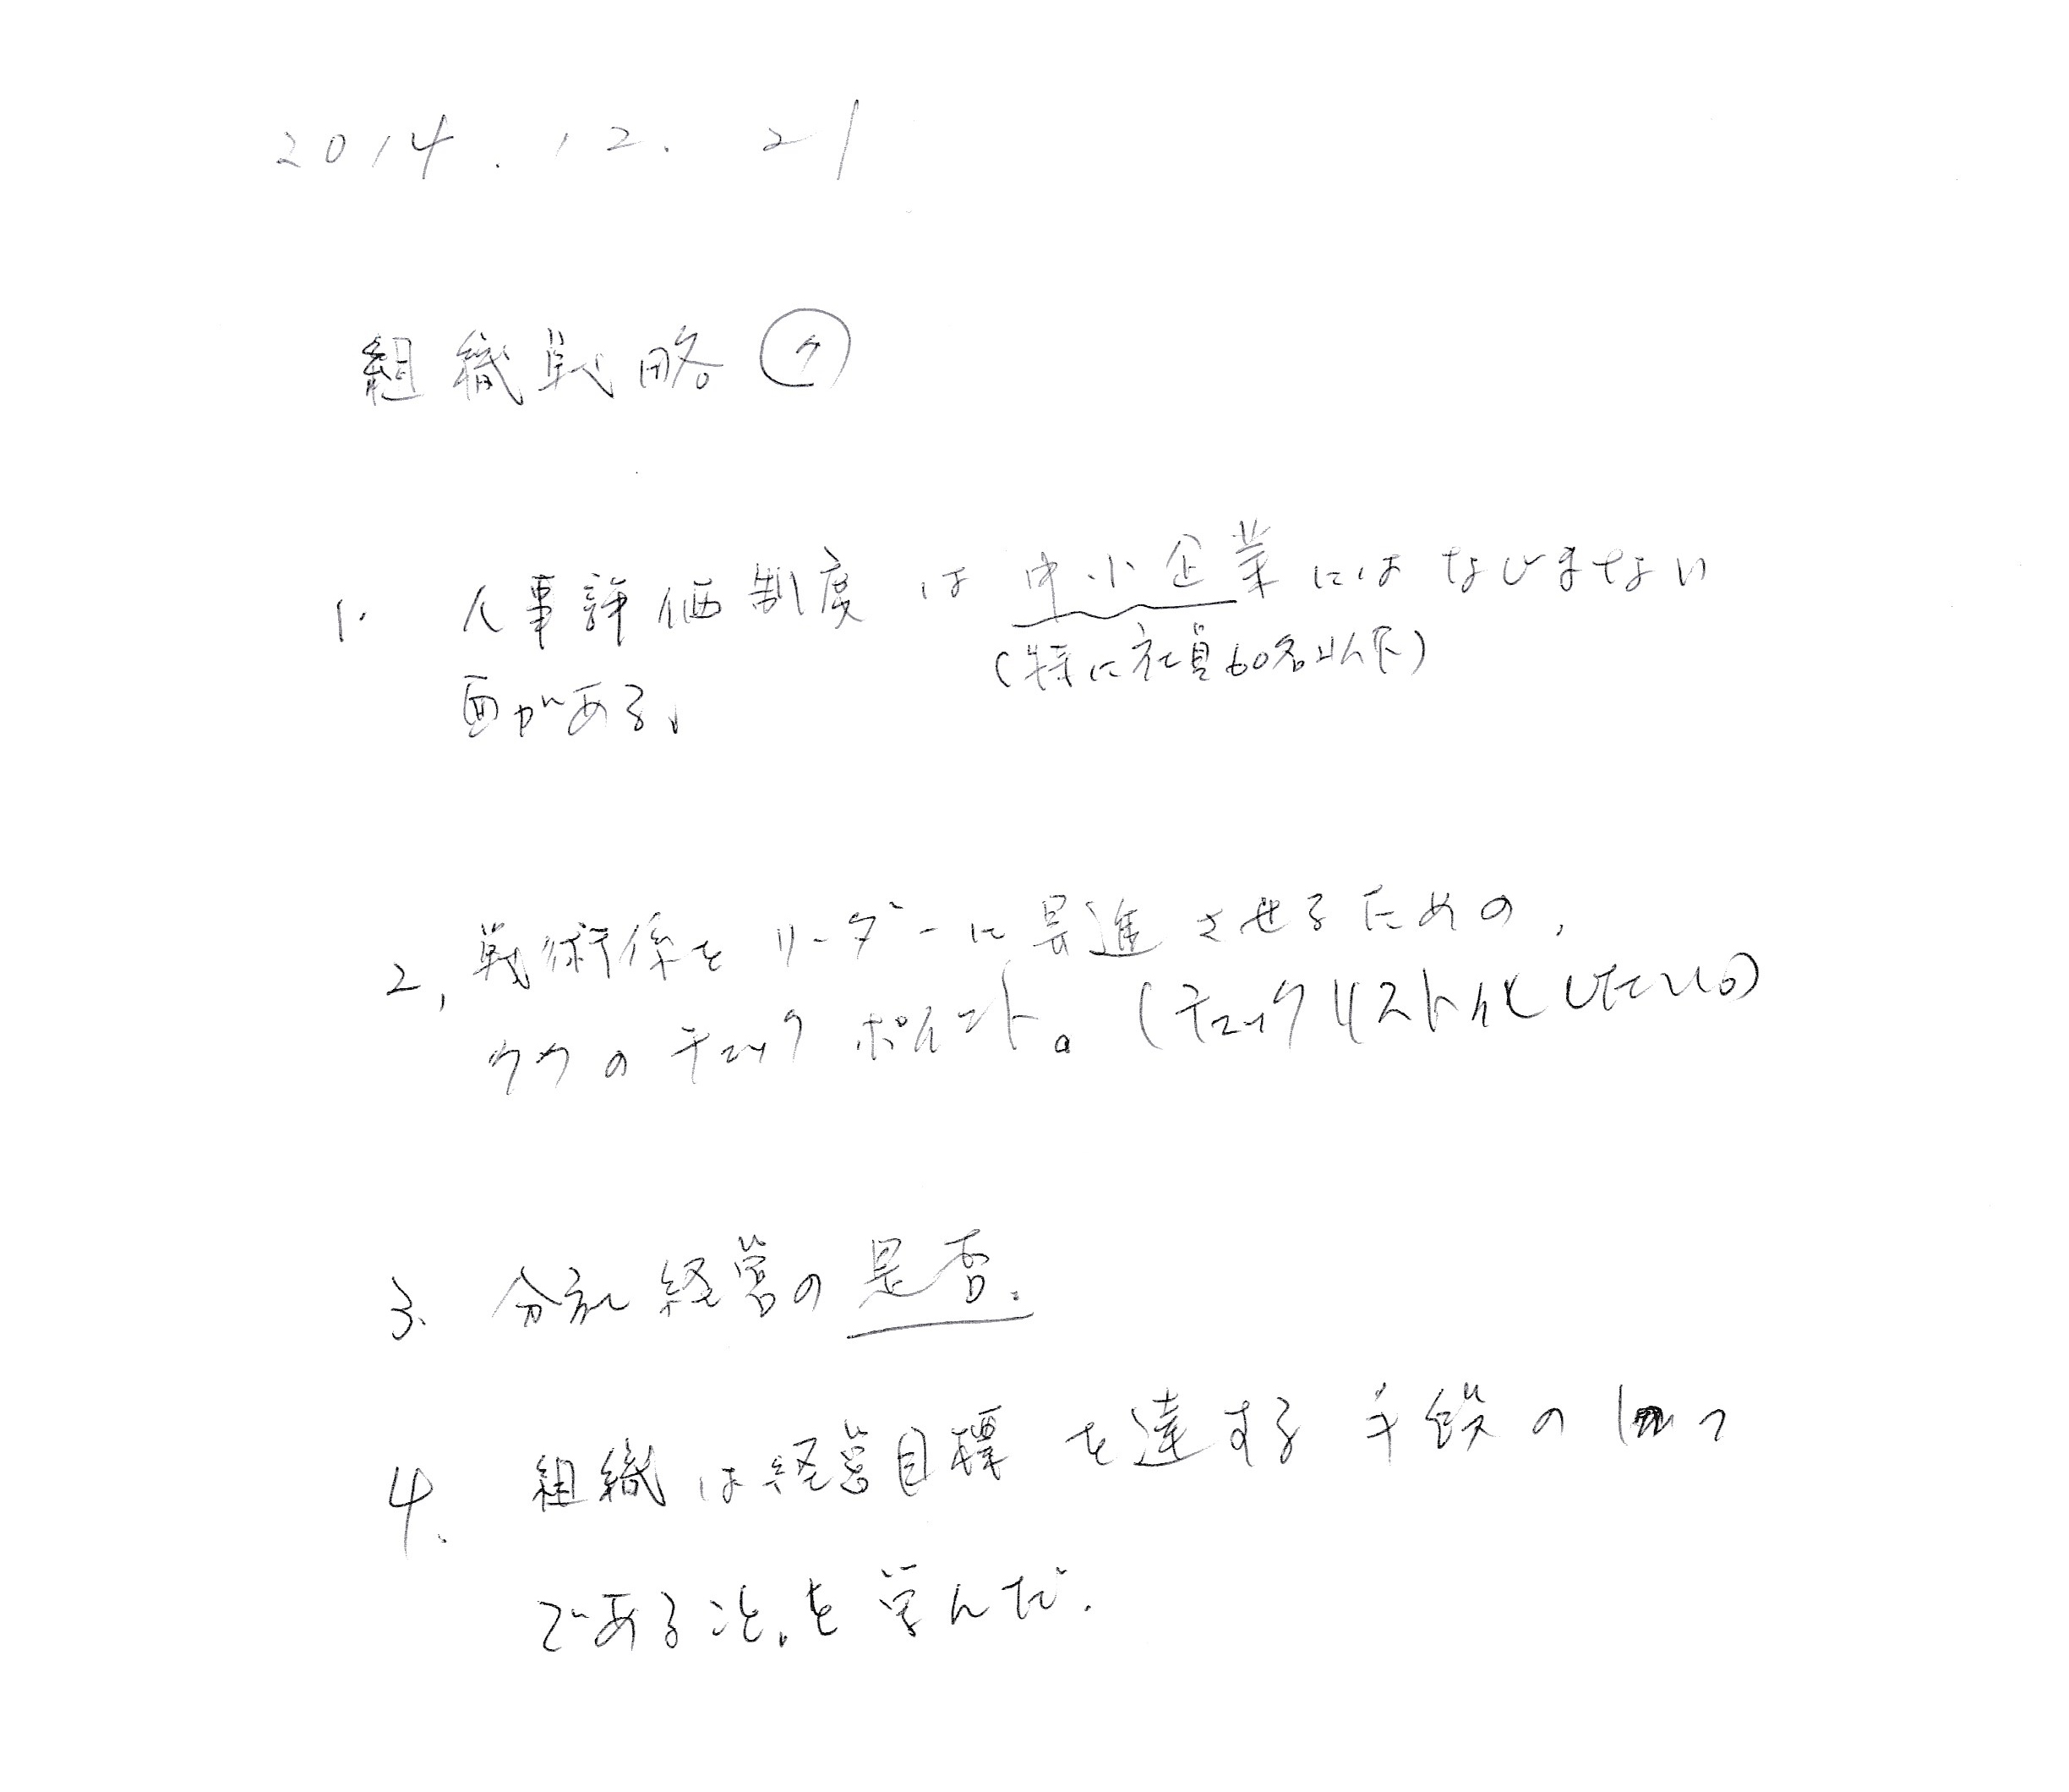 2014.12.21
組織戦略
1. 人事評価制度は中小企業にはなじまない
(特に社員60名以下)
面がある。
2, 戦術係をリーダーに昇進させるための、
チェックポイント。(チェックリスト化したい。)
3. 分社経営の是否。
4. 組織は経営目標を達する手段の1つ
であること。を学んだ.